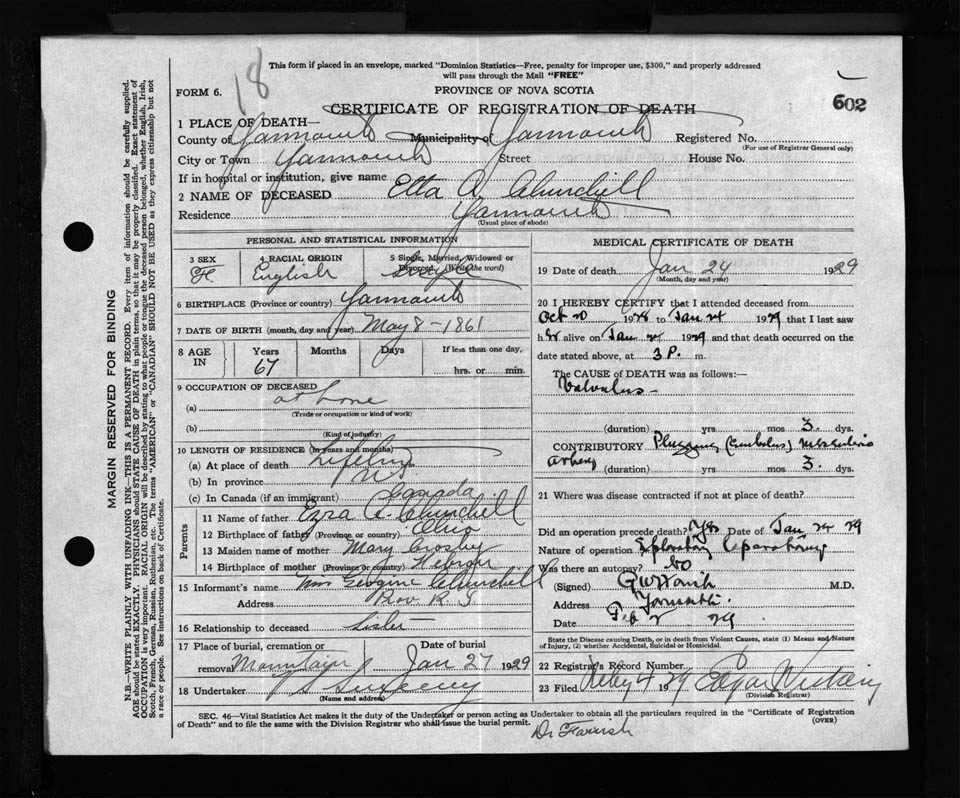 18
This form if placed in an envelope, marked "Dominion Statistics—Free, penalty for improper use, $300," and properly addressed
will pass through the Mail "FREE"
FORM 6.
PROVINCE OF NOVA SCOTIA
602
CERTIFICATE OF REGISTRATION OF DEATH
1 PLACE OF DEATH—
County of Yarmouth Municipality of Yarmouth Registered No.
(For use of Registrar General only)
City or Town Yarmouth Street House No.
If in hospital or institution, give name
2 NAME OF DECEASED Etta A. Churchill
Residence Yarmouth
(Usual place of abode)
PERSONAL AND STATISTICAL INFORMATION
3 SEX 4 RACIAL ORIGIN 5 Single, Married, Widowed or
Divorced (Write the word)
F. English Single
6 BIRTHPLACE (Province or country) Yarmouth
7 DATE OF BIRTH (month, day and year) May 8 - 1861
8 AGE IN Years Months Days If less than one day,
67 hrs. or min.
9 OCCUPATION OF DECEASED
(a) at home
(Trade or occupation or kind of work)
(b)
(Kind of industry)
10 LENGTH OF RESIDENCE (in years and months)
(a) At place of death Lifetime
(b) In province N.S.
(c) In Canada (if an immigrant) Canada
Parents
11 Name of father Ezra Churchill
12 Birthplace of father (Province or country)
13 Maiden name of mother Mary Crosby
14 Birthplace of mother (Province or country) Hebron
15 Informant's name Mrs Georgine Churchill
Address Prov R. I.
16 Relationship to deceased Sister
17 Place of burial, cremation or Date of burial
removal Mountain Jan 27 1929
18 Undertaker Sweeney
(Name and address)
MEDICAL CERTIFICATE OF DEATH
19 Date of death Jan 24 1929
(Month, day and year)
20 I HEREBY CERTIFY that I attended deceased from
Oct 20 1928 to Jan 24 1929 that I last saw
her alive on Jan 24 1929 and that death occurred on the
date stated above, at 3 P. m.
The CAUSE of DEATH was as follows:—
Volvulus
(duration) yrs mos 3 dys.
CONTRIBUTORY Plugging (embolus) mesenteric
artery (duration) yrs mos 3. dys.
21 Where was disease contracted if not at place of death?
Did an operation precede death? Yes Date of Jan 24 29
Nature of operation Exploratory Laparotomy
Was there an autopsy? No
(Signed) M.D.
Address Yarmouth.
Date Feb 2 29
State the Disease causing Death, or in death from Violent Causes, state (1) Means and Nature
of Injury, (2) whether Accidental, Suicidal or Homicidal.
22 Registrar's Record Number
23 Filed Feby 4 1929 Edgar
(Division Registrar)
SEC. 46—Vital Statistics Act makes it the duty of the Undertaker or person acting as Undertaker to obtain all the particulars required in the "Certificate of Registration
of Death" and to file the same with the Division Registrar who shall issue the burial permit.
(OVER)
Dr Farish
MARGIN RESERVED FOR BINDING
N.B.—WRITE PLAINLY WITH UNFADING INK—THIS IS A PERMANENT RECORD. Every item of information should be carefully supplied.
AGE should be stated EXACTLY. PHYSICIANS should STATE CAUSE OF DEATH in plain terms, so that it may be properly classified. Exact statement of
OCCUPATION is very important. RACIAL ORIGIN will be described by stating to what people or tongue the deceased person belonged, whether English, Irish,
Scotch, French, German, Russian, Ruthenian, etc. The terms "AMERICAN" or "CANADIAN" SHOULD NOT BE USED as they express citizenship but not
a race or people. See instructions on back of Certificate.